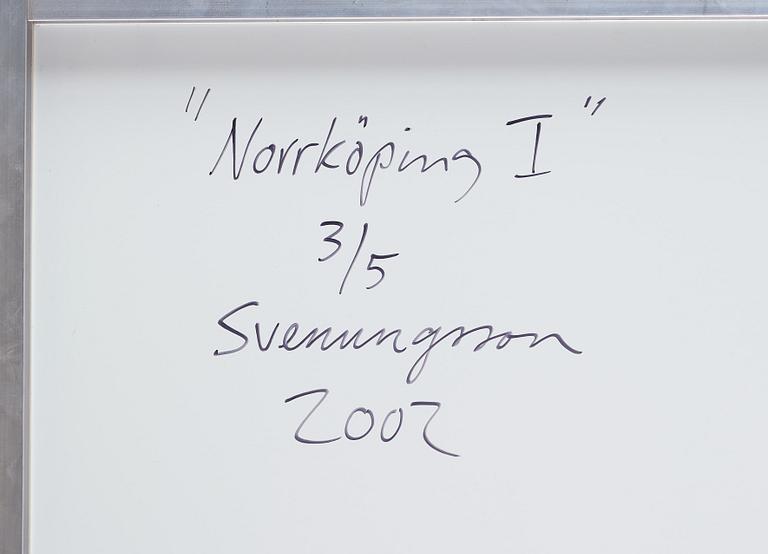 "Norrköping I"
3/5
Svenungsson
2002